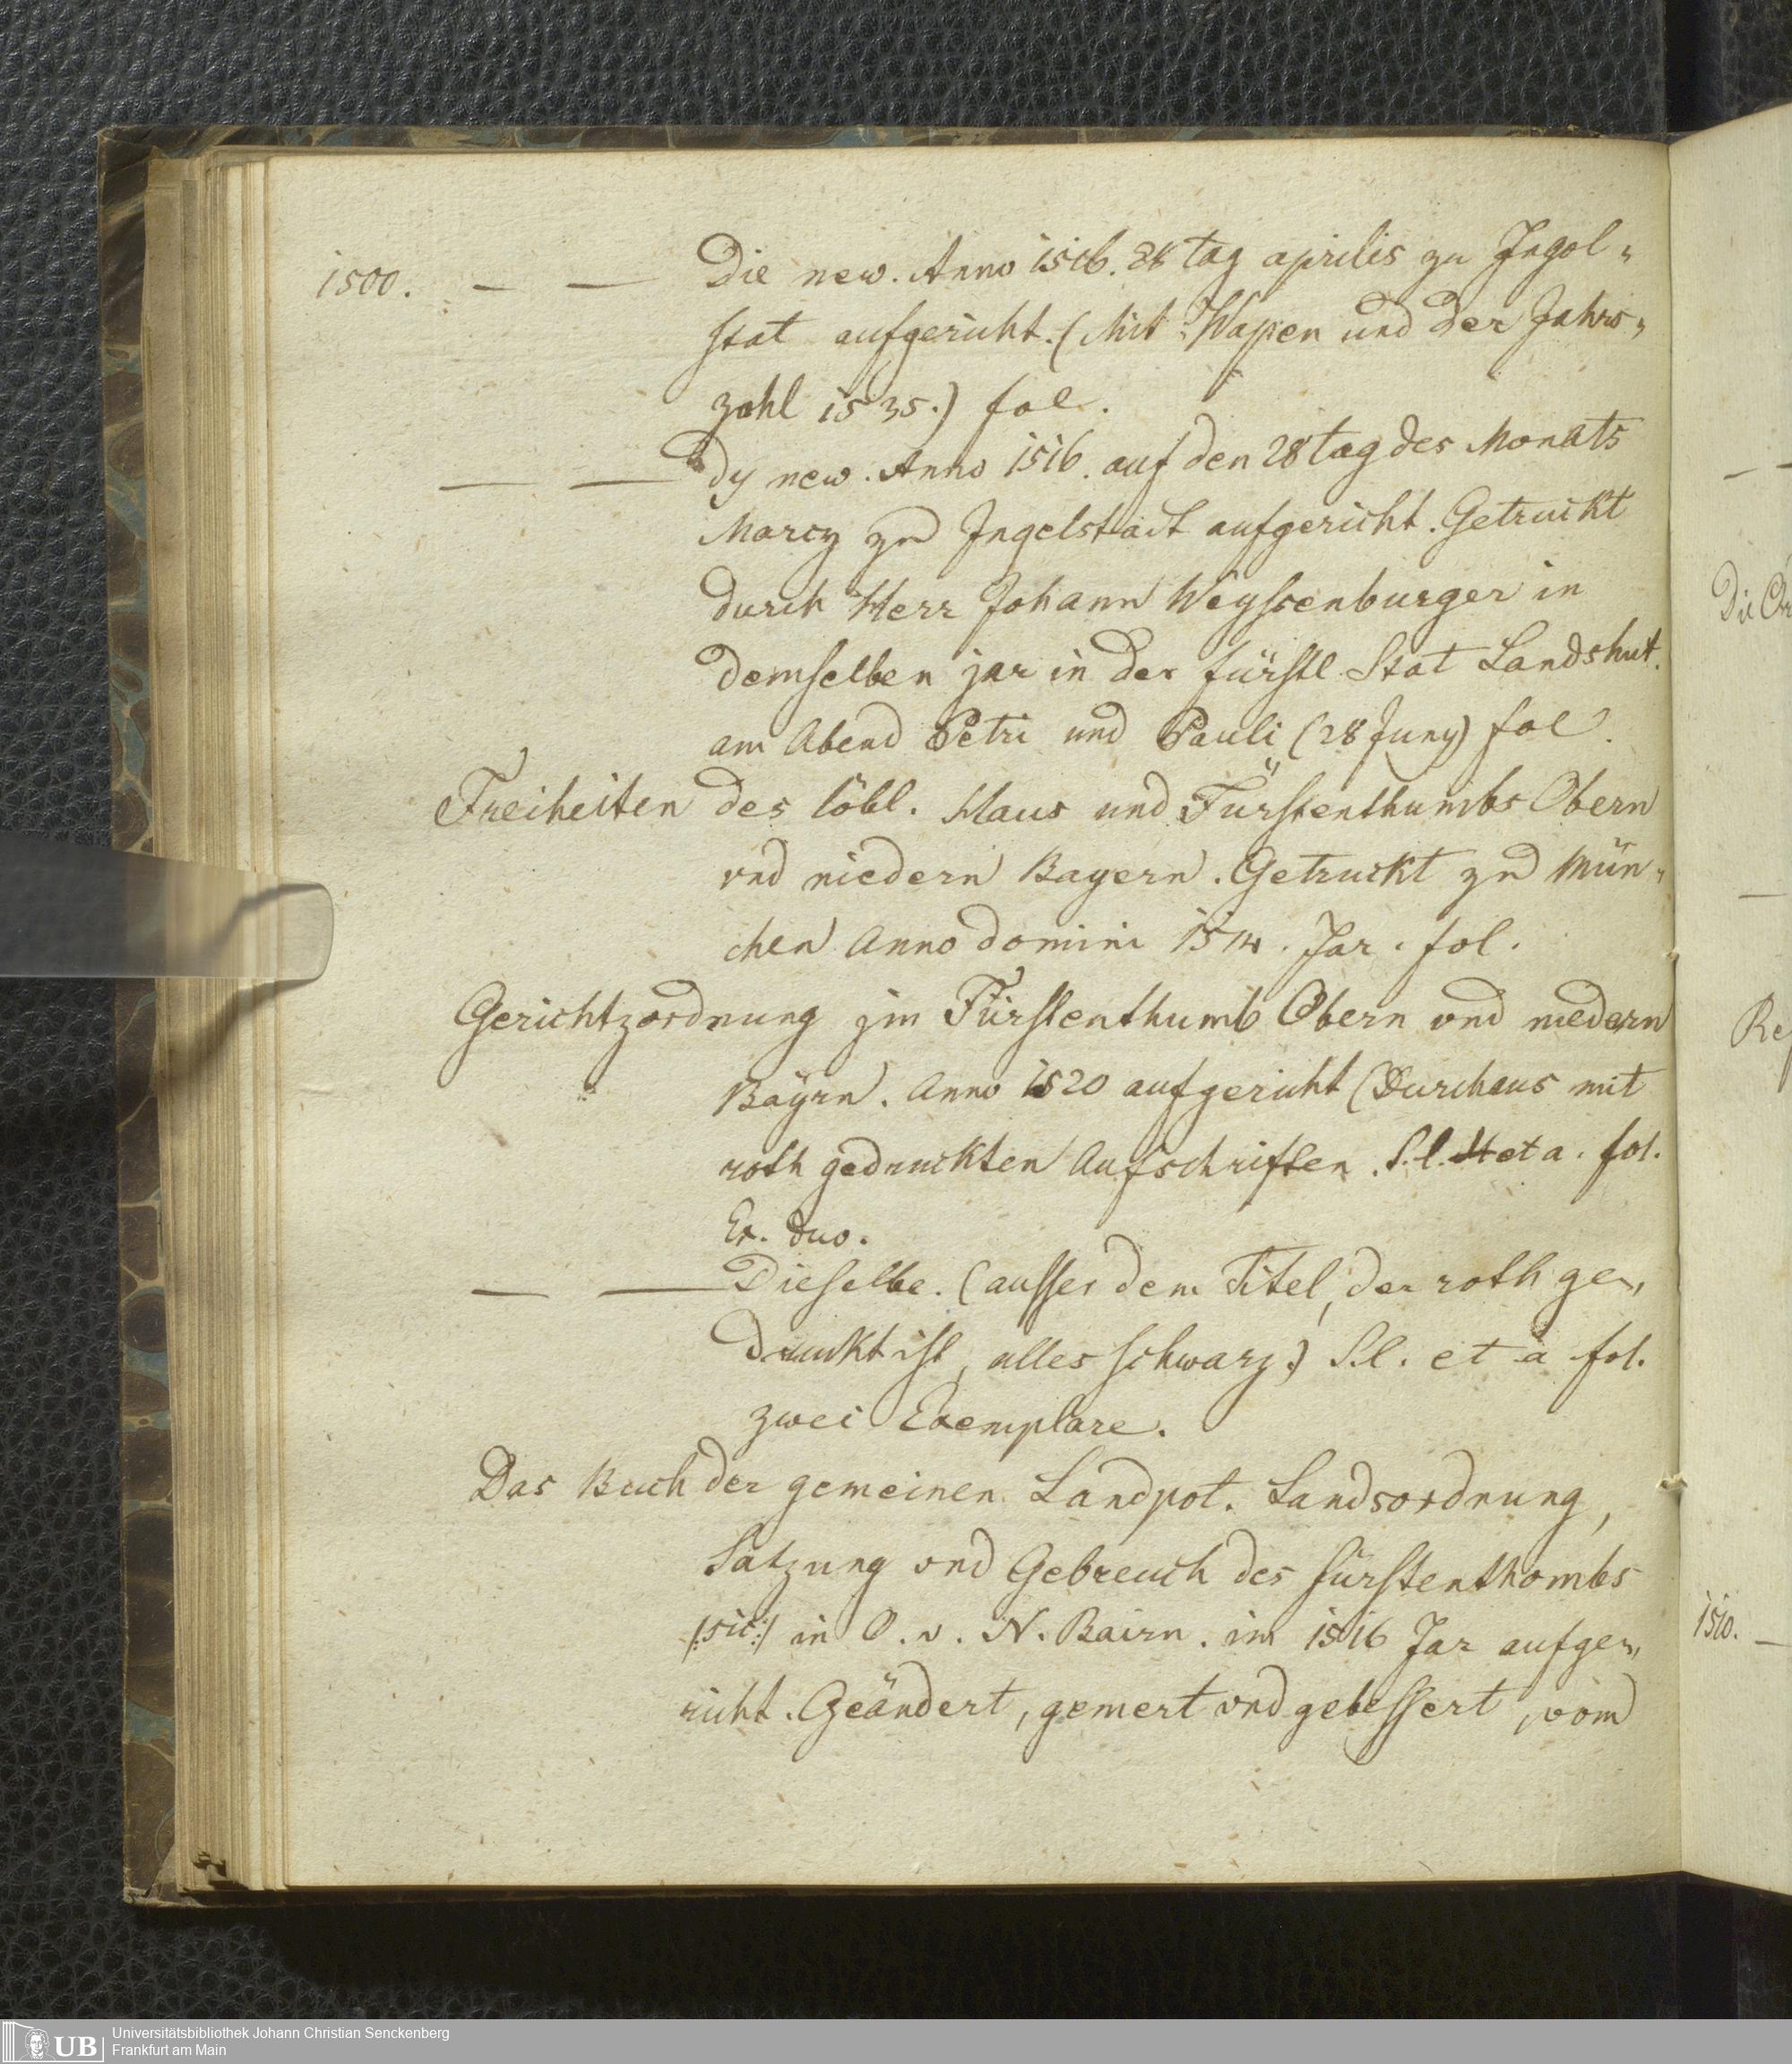 1500. — — Die new. Anno 1516. 24 tag aprilis zu Ingol„
stat aufgericht. (Mit Wapen und der Jahrs„
zahl 1535.) fol.
— — Dy new. Anno 1516. auf den 28 tag des Monats
Marcy zu Ingelstadt aufgericht. Getruckt
durch Herr Johann Weyssenburger in
demselben jar in der fürstl. Stat Landshut.
am Abend Petri und Pauli (28 Juny) fol.
Freiheiten des löbl. Haus und Fürstenthumbs Obern
vnd niedern Bayern. Getruckt zu Mün„
chen Anno domini 1514. Jar. fol.
Gerichtzordnung jm Fürstenthumb Obern vnd niedern
Bayrn. Anno 1520 aufgericht (Durchaus mit
roth gedruckten Aufschriften. S. l. et a. fol.
Ex. duo.
— — Dieselbe. (ausser dem Titel, der roth ge„
druckt ist, alles schwarz.) S. l. et a fol.
zwei Exemplare.
Das Buch der gemeinen Landpot. Landsordnung,
Satzung vnd Gebreuch des fürstenthombs
/:sic:/ in O. v. N. Bairn. im 1516 Jar aufge„
richt. Geändert, gemert vnd gebessert, vom
Die
1510. —
UB
Universitätsbibliothek Johann Christian Senckenberg
Frankfurt am Main